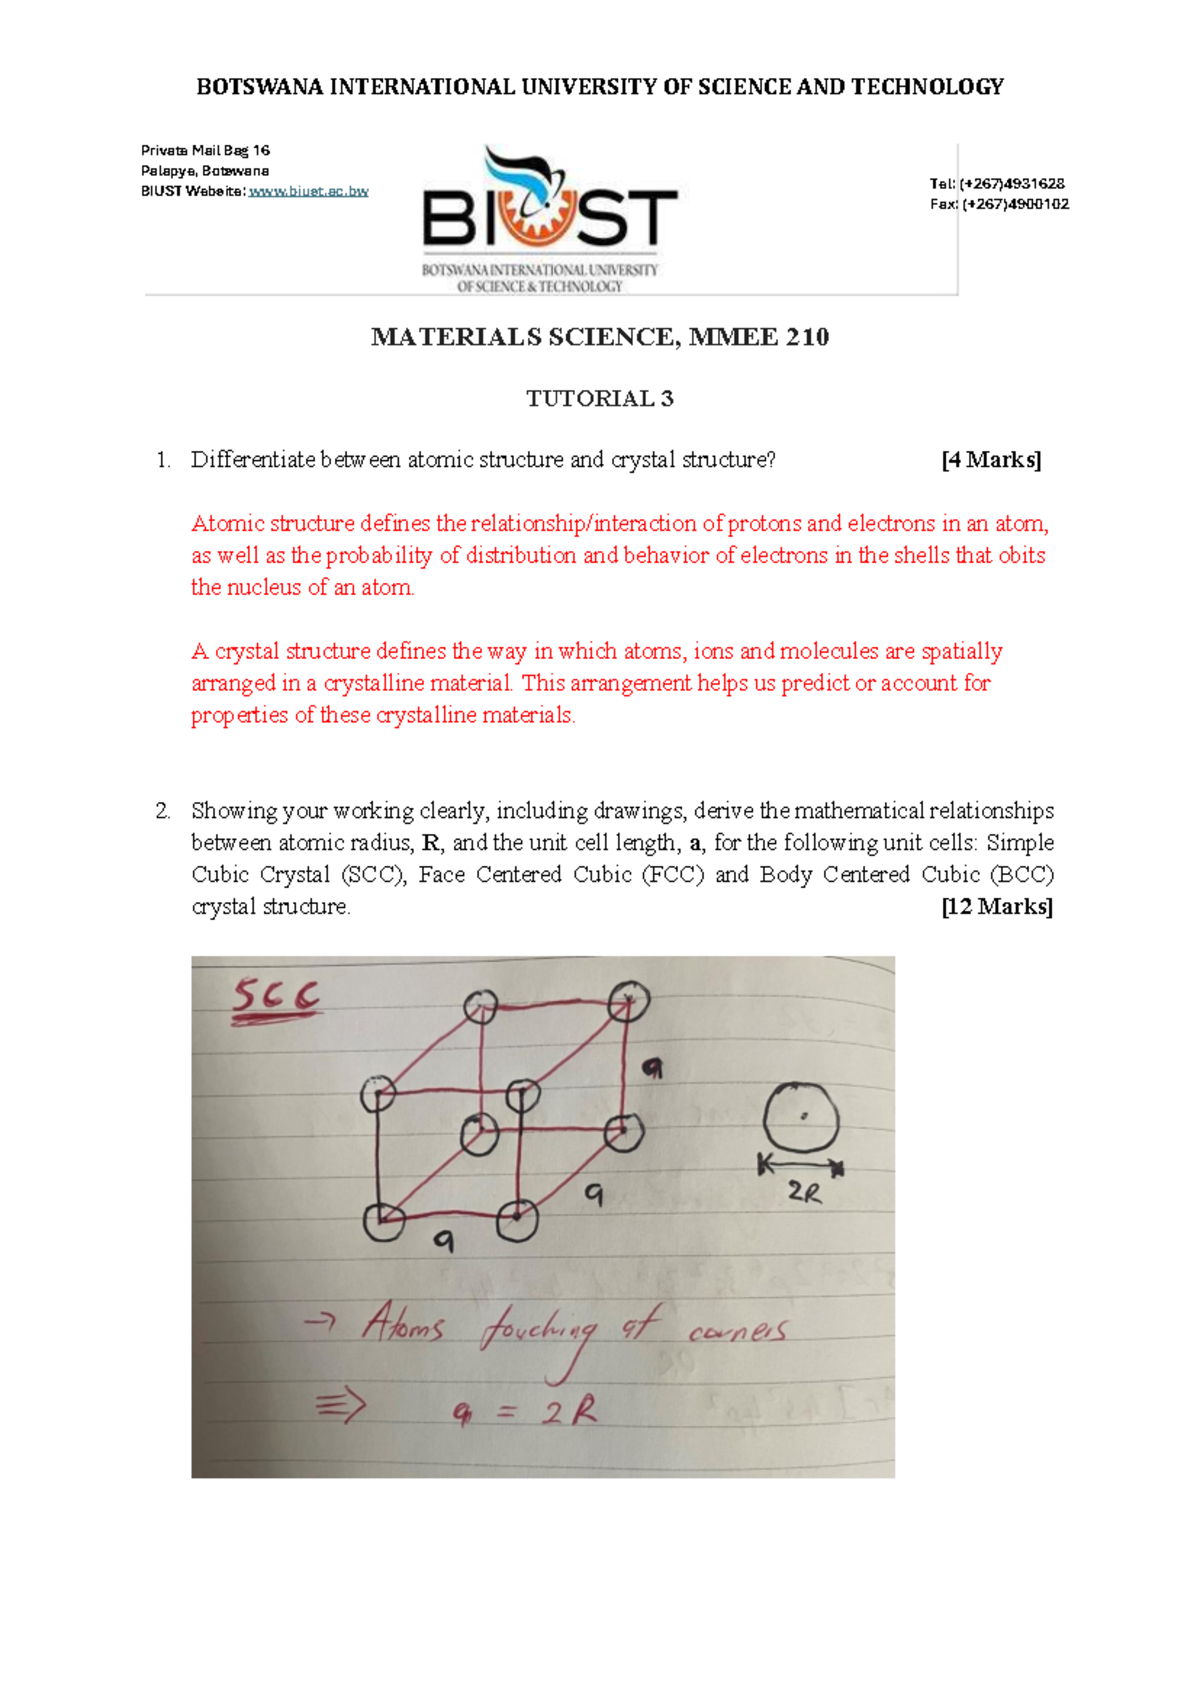 BOTSWANA INTERNATIONAL UNIVERSITY OF SCIENCE AND TECHNOLOGY
Private Mail Bag 16
Palapye, Botswana
BIUST Website: www.biust.ac.bw
BIUST
BOTSWANA INTERNATIONAL UNIVERSITY
OF SCIENCE & TECHNOLOGY
Tel: (+267)4931628
Fax: (+267)4900102
MATERIALS SCIENCE, MMEE 210
TUTORIAL 3
1. Differentiate between atomic structure and crystal structure? [4 Marks]
Atomic structure defines the relationship/interaction of protons and electrons in an atom,
as well as the probability of distribution and behavior of electrons in the shells that obits
the nucleus of an atom.
A crystal structure defines the way in which atoms, ions and molecules are spatially
arranged in a crystalline material. This arrangement helps us predict or account for
properties of these crystalline materials.
2. Showing your working clearly, including drawings, derive the mathematical relationships
between atomic radius, R, and the unit cell length, a, for the following unit cells: Simple
Cubic Crystal (SCC), Face Centered Cubic (FCC) and Body Centered Cubic (BCC)
crystal structure. [12 Marks]
SCC
a
a
a
2R
→ Atoms touching at corners
⇒ a = 2R